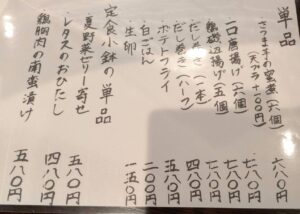 単品
・さつま芋の蜜煮(五個) 六八〇円
(天プラ+100円)
・一口唐揚げ(六個) 七八〇円
・鶏磯辺揚げ(五個) 七八〇円
・だし巻き(一本) 七八〇円
・だし巻き(ハーフ) 四八〇円
・ポテトフライ 五八〇円
・白ごはん 二〇〇円
・生卵 一五〇円
定食小鉢の単品
・夏野菜ゼリー寄せ 五八〇円
・レタスのおひたし 四八〇円
・鶏胸肉の南蛮漬け 五八〇円